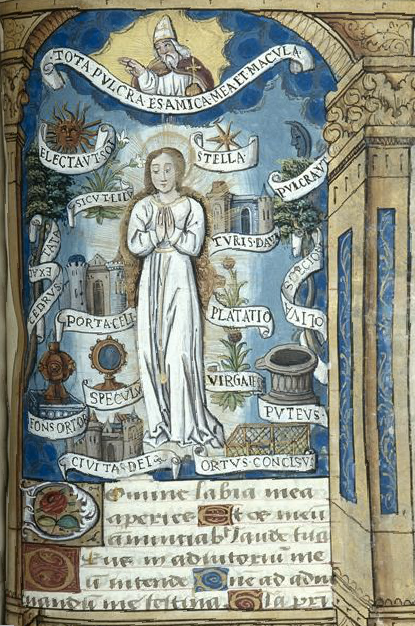 TOTA PVLCRA ES AMICA MEA ET MACVLA
ELECTA VT SOL
STELLA
PVLCRA VT
SICVT LILI
TVRIS DAV
CEDRVS EXALTATA
OLIVA SPECIO
PORTA CELI
PLATATIO
SPECVLV
VIRGA IE
FONS ORTO
PVTEVS
CIVITAS DEI
ORTVS CONCLVSV
Domine labia mea
aperies Et os meu
annuntiab laude tua
Deus in adiutoriu me
u intende Dne ad adiu
uandu me festina Gla pri